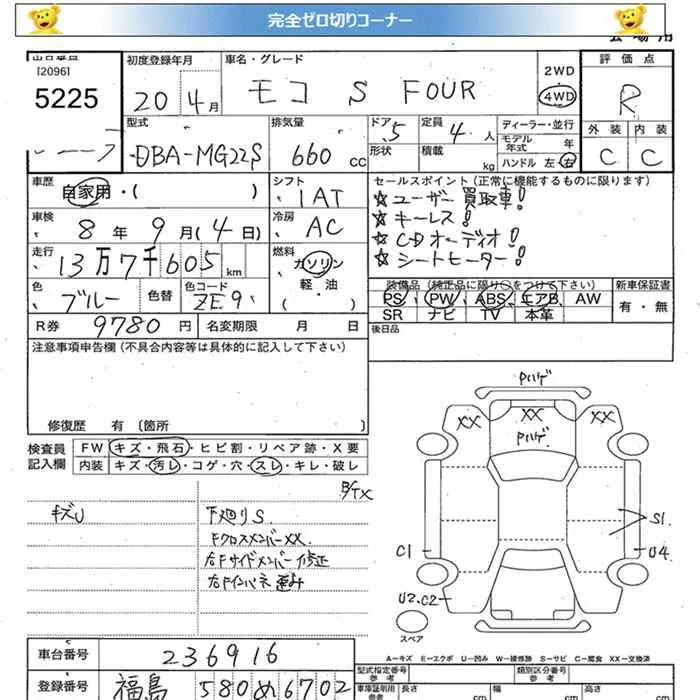 完全ゼロ切りコーナー
[2096]
5225
初度登録年月
20 4月
車名・グレード
モコ S FOUR
2WD
4WD
評価点
R
外装 内装
C C
型式
DBA-MG22S
排気量
660 cc
ドア 5
形状
定員 4 人
積載 kg
ディーラー・並行
モデル年式 年
ハンドル 左・右
車歴 自家用・( )
シフト 1AT
セールスポイント (正常に機能するものに限ります)
☆ユーザー買取車!
☆キーレス!
☆CDオーディオ!
☆シートモーター!
車検 8年 9月(4日)
冷房 AC
走行 13万7千605 km
燃料 ガソリン
軽・油
( )
色 ブルー 色替
色コード ZE9
装備品 (純正品に限り○をつけて下さい)
PS PW ABS エアB AW
SR ナビ TV 本革
新車保証書
有・無
R券 9780 円 名変期限 月 日
後日品
注意事項申告欄 (不具合内容等は具体的に記入して下さい)
修復歴 有 〔箇所 〕
検査員記入欄
FW キズ・飛石・ヒビ割・リペア跡・X要
内装 キズ・汚レ・コゲ・穴・スレ・キレ・破レ
B/TX
キズU
下廻りS.
FクロスメンバーXX.
右Fサイドメンバー修正
右Fインパネ歪み
Pハゲ
XX XX XX
Pハゲ
S1.
C1
U4
U2.C2
スペア
A-キズ E-エクボ U-凹み W-補修跡 S-サビ C-腐食 XX-交換済
車台番号 236916
登録番号 福島 580 め 6702
型式指定番号
参考
類別区分番号
参考
車庫証明用
参考
長さ cm
幅 cm
高さ cm